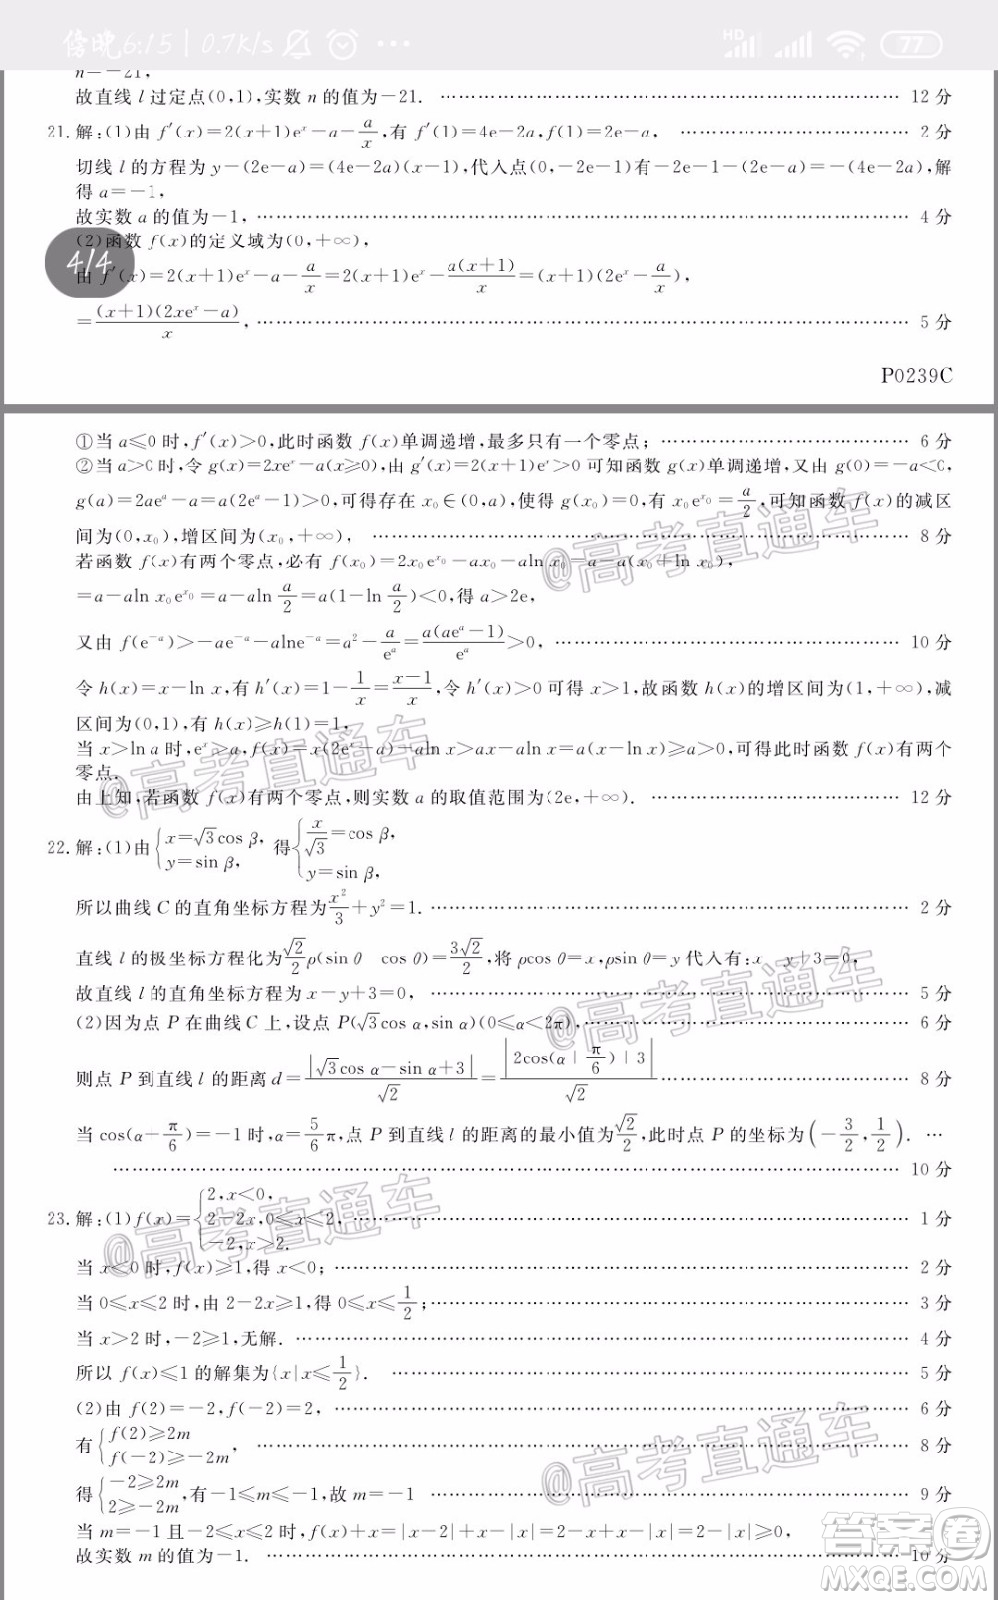 傍晚6:15 | 0.7K/s ···
HD 77
n=-21,
故直线 l 过定点(0,1),实数 n 的值为-21. …… 12 分
21. 解:(1)由 f′(x)=2(x+1)eˣ-a-a/x,有 f′(1)=4e-2a,f(1)=2e-a, …… 2 分
切线 l 的方程为 y-(2e-a)=(4e-2a)(x-1),代入点(0,-2e-1)有-2e-1-(2e-a)=-(4e-2a),解
得 a=-1,
故实数 a 的值为-1, …… 4 分
(2)函数 f(x)的定义域为(0,+∞),
4/4
由 f′(x)=2(x+1)eˣ-a-a/x=2(x+1)eˣ-a(x+1)/x=(x+1)(2eˣ-a/x),
=(x+1)(2xeˣ-a)/x, …… 5 分
P0239C
①当 a≤0 时,f′(x)>0,此时函数 f(x)单调递增,最多只有一个零点; …… 6 分
②当 a>0 时,令 g(x)=2xeˣ-a(x≥0),由 g′(x)=2(x+1)eˣ>0 可知函数 g(x)单调递增,又由 g(0)=-a<0,
g(a)=2aeᵃ-a=a(2eᵃ-1)>0,可得存在 x₀∈(0,a),使得 g(x₀)=0,有 x₀e^{x₀}=a/2,可知函数 f(x)的减区
间为(0,x₀),增区间为(x₀,+∞), …… 8 分
若函数 f(x)有两个零点,必有 f(x₀)=2x₀e^{x₀}-ax₀-aln x₀=a-a(x₀+ln x₀),
=a-aln x₀e^{x₀}=a-aln a/2=a(1-ln a/2)<0,得 a>2e,
又由 f(e⁻ᵃ)>-ae⁻ᵃ-alne⁻ᵃ=a²-a/eᵃ=a(aeᵃ-1)/eᵃ>0, …… 10 分
令 h(x)=x-ln x,有 h′(x)=1-1/x=(x-1)/x,令 h′(x)>0 可得 x>1,故函数 h(x)的增区间为(1,+∞),减
区间为(0,1),有 h(x)≥h(1)=1,
当 x>ln a 时,eˣ>a,f(x)=x(2eˣ-a)-aln x>ax-aln x=a(x-ln x)≥a>0,可得此时函数 f(x)有两个
零点.
由上知,若函数 f(x)有两个零点,则实数 a 的取值范围为(2e,+∞). …… 12 分
22. 解:(1)由{x=√3cos β, y=sin β, 得{x/√3=cos β, y=sin β,
所以曲线 C 的直角坐标方程为x²/3+y²=1. …… 2 分
直线 l 的极坐标方程化为√2/2ρ(sin θ cos θ)=3√2/2,将 ρcos θ=x,ρsin θ=y 代入有:x y+3=0,
故直线 l 的直角坐标方程为 x-y+3=0, …… 5 分
(2)因为点 P 在曲线 C 上,设点 P(√3cos α,sin α)(0≤α<2π), …… 6 分
则点 P 到直线 l 的距离 d=|√3cos α-sin α+3|/√2=|2cos(α|π/6)|3|/√2 …… 8 分
当 cos(α-π/6)=-1 时,α=5/6π,点 P 到直线 l 的距离的最小值为√2/2,此时点 P 的坐标为(-3/2,1/2). …
…… 10 分
23. 解:(1)f(x)={2,x<0, 2-2x,0≤x≤2, -2,x>2. …… 1 分
当 x<0 时,f(x)≥1,得 x<0; …… 2 分
当 0≤x≤2 时,由 2-2x≥1,得 0≤x≤1/2; …… 3 分
当 x>2 时,-2≥1,无解. …… 4 分
所以 f(x)≤1 的解集为{x|x≤1/2}. …… 5 分
(2)由 f(2)=-2,f(-2)=2, …… 6 分
有{f(2)≥2m f(-2)≥-2m, …… 8 分
得{-2≥2m 2≥-2m,有-1≤m≤-1,故 m=-1 …… 9 分
当 m=-1 且-2≤x≤2 时,f(x)+x=|x-2|+x-|x|=2-|x|≥0,
故实数 m 的值为-1. …… 10 分
@高考直通车
@高考直通车
@高考直通车
@高考直通车
@高考直通车
答案圈
MXQE.COM